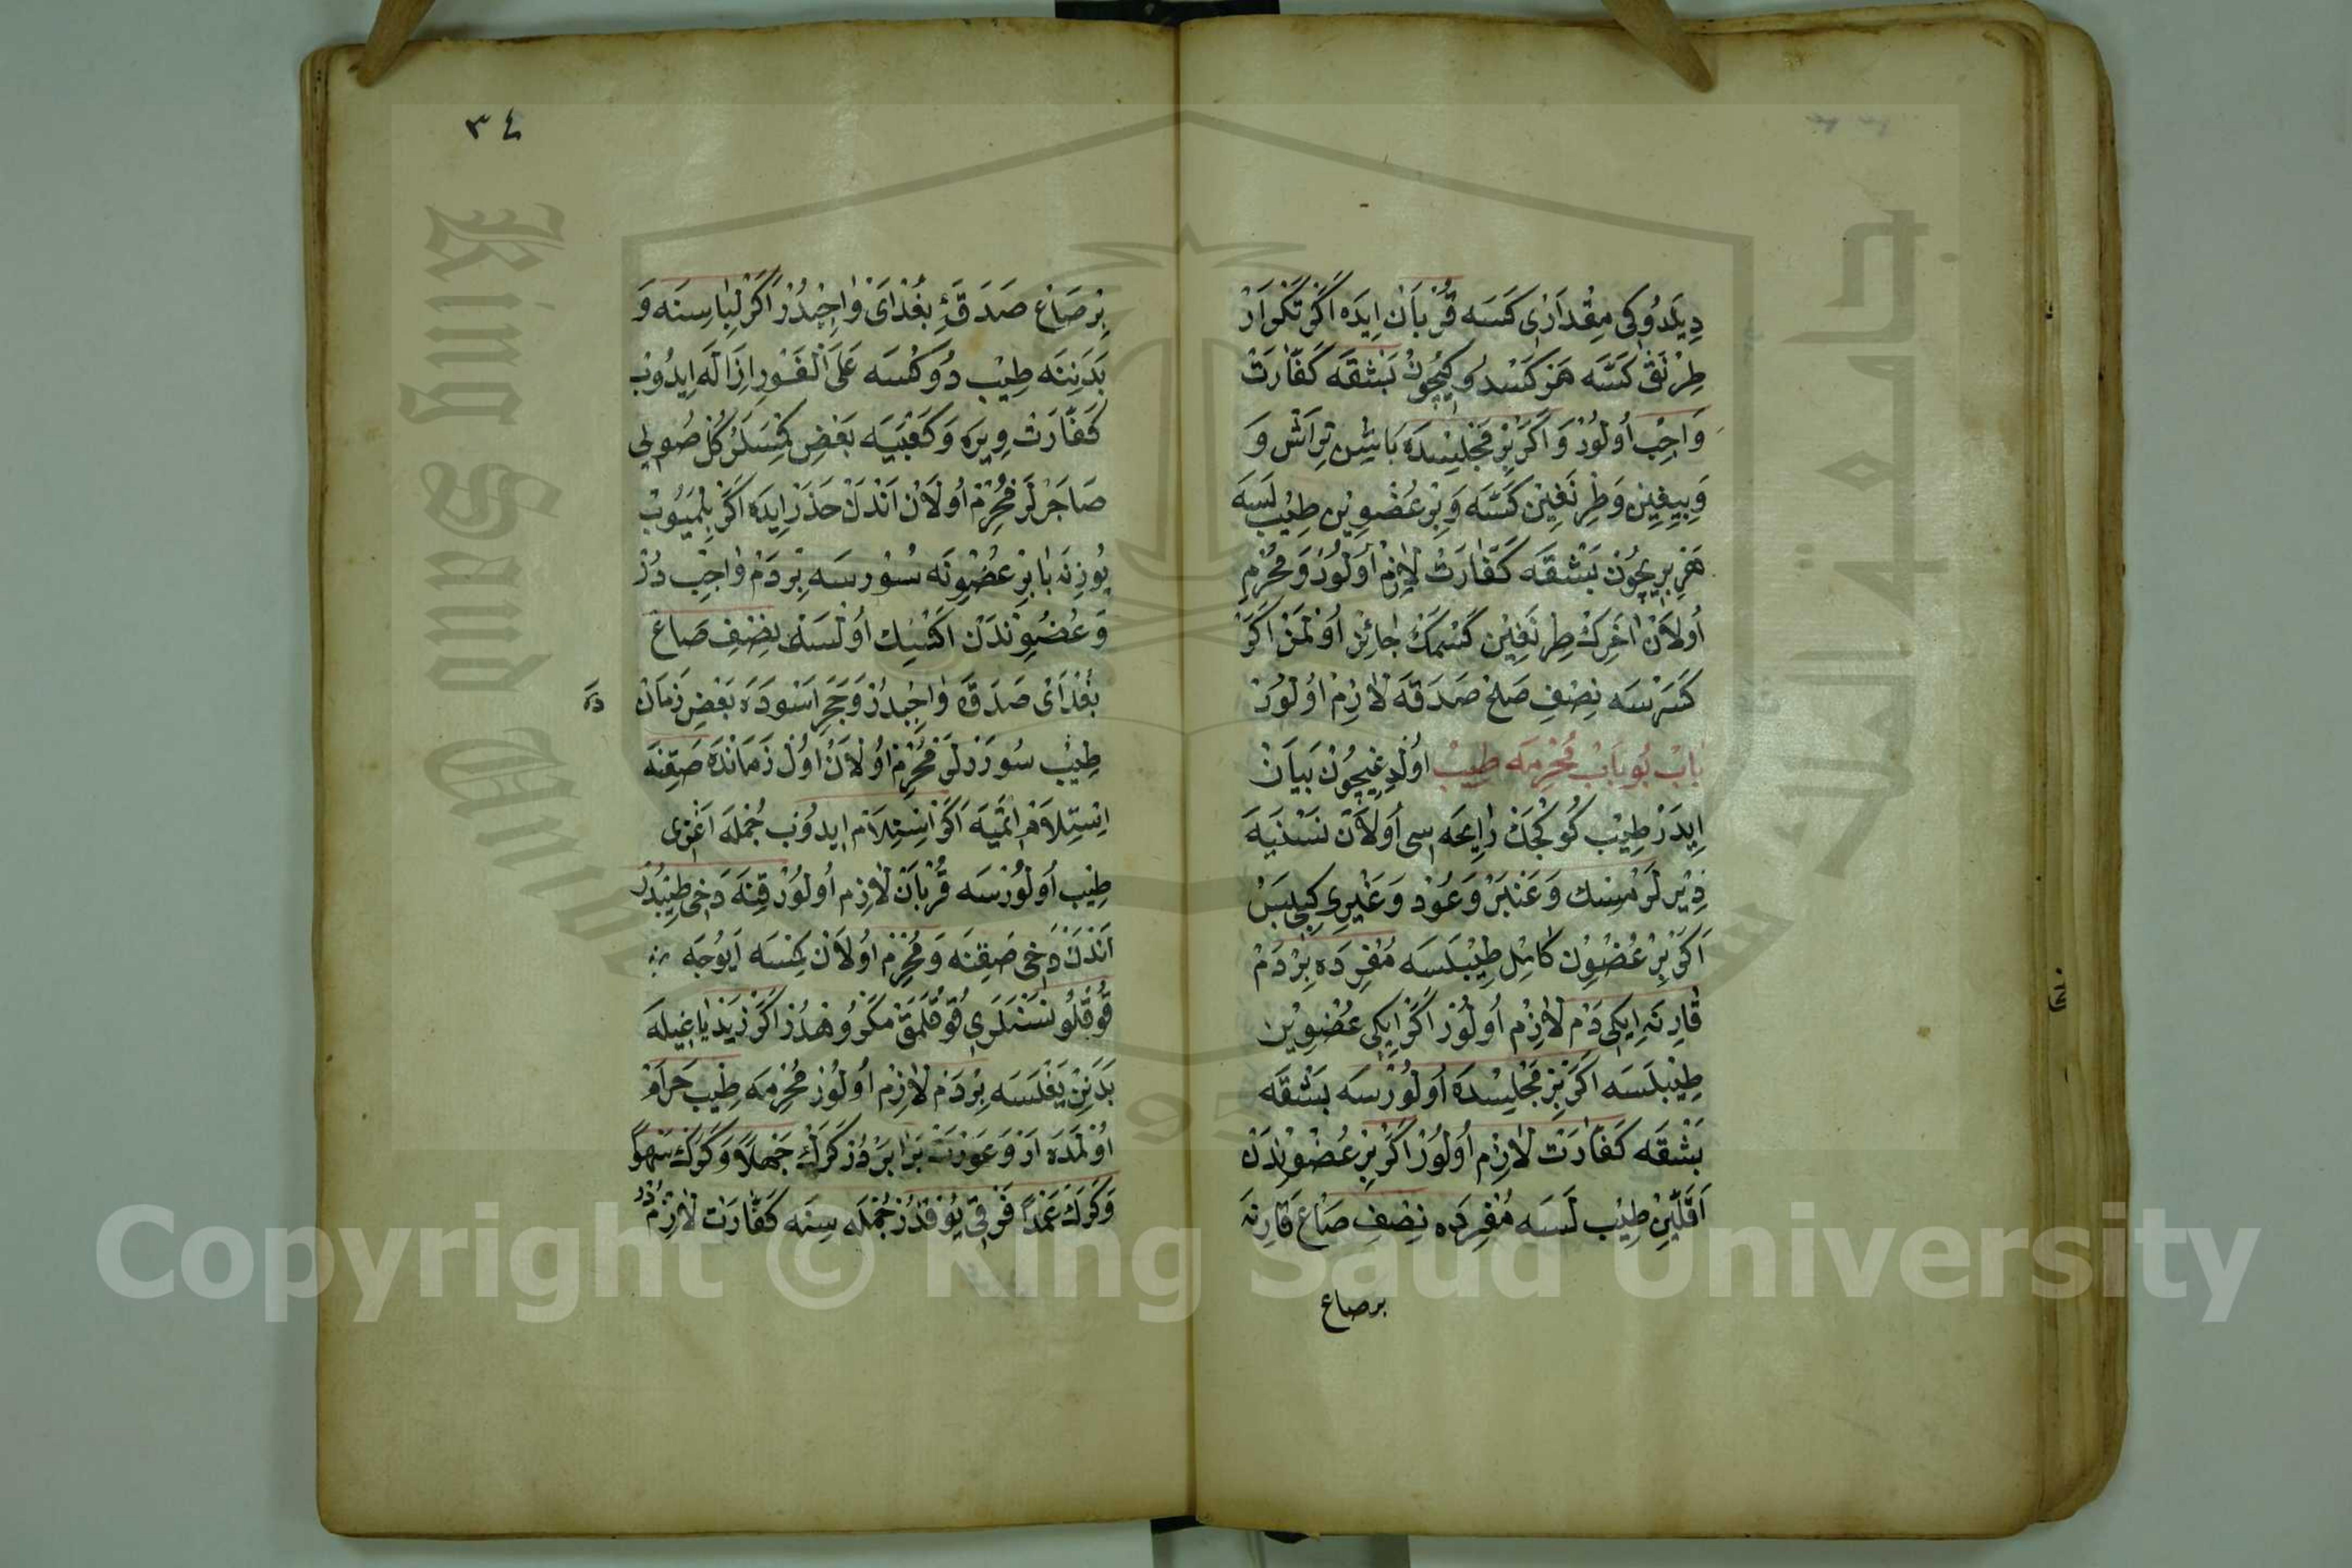 دِيلَدُوكِى مِقْدَارِى كَسَه قُرْبَانْ اِيدَه اَكَرْ تَكْرَارْ
طِرْنَقْ كَسَّه هَرْ كَسْدُوكِيچُونْ بَشْقَه كَفَّارَتْ
وَاجِبْ اُولُورْ وَاَكَرْ بِرْ مَجْلِسْدَه بَاشِينْ تِرَاشْ وَ
وَبِيِغِينْ وَطِرْنَغِينْ كَسَّه وَبِرْ عُضْوِينْ طِيْبْ لَسَه
هَرْ بِرِيچُونْ بَشْقَه كَفَّارَتْ لَازِمْ اُولُورْ وَمُحْرِمْ
اُولَانْ اخَرِكْ طِرْنَغِينْ كَسْمَكْ جَائِزْ اُولْمَزْ اَكَرْ
كَسَرْسَه نِصْفِ صَاعْ صَدَقَه لَازِمْ اُولُورْ
بَابْ بُو بَابْ مُحْرِمَه طِيبْ اُولْدِيغِيچُونْ بَيَانْ
اِيدَرْ طِيْبْ كُوكْچَكْ رَايِحَه سِى اُولَانْ نَسْنَيَه
دِيْرلَرْ مِسْك وَعَنْبَرْ وَعُودْ وَغَيْرِى كِيبِى پَسْ
اَكَرْ بِرْ عُضْوِنْ كَامِلْ طِيْبْلَسَه مُفْرِدَه بِرْ دَمْ
قَارِنَه اِيكِى دَمْ لَازِمْ اُولُورْ اَكَرْ اِيكِى عُضْوِيْنْ
طِيْبْلَسَه اَكَرْ بِرْ مَجْلِسْدَه اُولُورْسَه بَشْقَه
بَشْقَه كَفَّارَتْ لَازِمْ اُولُورْ اَكَرْ بِرْ عُضْوُنْدَنْ
اَقَلِّينْ طِيْبْ لَسَه مُفْرِدَه نِصْفِ صَاعْ قَارِنَه
بر صاع
٣٤
بِرْ صَاعْ صَدَقَۀِ بُغْدَاىْ وَاجِبْدُرْ اَكَرْ لِبَاسِنَه وَ
بَدَنِنَه طِيْبْ دُوكُسَه عَلَى الْفَوْرِ اِزَالَه اِيدُوبْ
كَفَّارَتْ وِيرَه وَكَعْبَيَه بَعْضِ كِمْسَلَرْ كُلْ صُويِى
صَاجَرْلَرْ مُحْرِمْ اُولَانْ اَنْدَنْ حَذَرْ اِيدَه اَكَرْ بِلْمَيُوبْ
يُوزِنَه يَا بِرْ عُضْوِنَه سُورسَه بِرْ دَمْ وَاجِبْ دُرْ
وَعُضْوِنْدَنْ اَكْسِكْ اُولْسَه نِصْفِ صَاعْ
بُغْدَاىْ صَدَقَه وَاجِبْدُرْ وَحَجَرِ اَسْوَدَه بَعْضِ زَمَانْ
دَه
طِيْبْ سُورَرْلَرْ مُحْرِمْ اُولَانْ اُولْ زَمَانْدَه صَقِنَه
اِسْتِلَامْ اِتْمَيَه اَكَرْ اِسْتِلَامْ اِيدُوبْ جُمْلَه اَغْزِى
طِيْبْ اُولُورْسَه قُرْبَانْ لَازِمْ اُولُورْ قِنَه دَخِى طِيْبْدُرْ
اَنْدَنْ دَخِى صَقِنَه وَمُحْرِمْ اُولَانْ كِمْسَه اَيُوجَه
قُوقُلُو نَسْنَلَرِى قُوقُلَمَقْ مَكْرُوهْدُرْ اَكَرْ زَيْتْ يَاغِيلَه
بَدَنِنْ يَغْلَسَه بِرْ دَمْ لَازِمْ اُولُورْ مُحْرِمَه طِيْبْ حَرَامْ
اُولْمَدَه اَرْ وَعَوْرَتْ بَرَابَرْدُرْ كَرَكْ جَهْلًا وَكَرَكْ سَهْوًا
وَكَرَكْ عَمْدًا فَرْقِى يُوقْدُرْ جُمْلَه سِنَه كَفَّارَتْ لَازِمْدُرْ